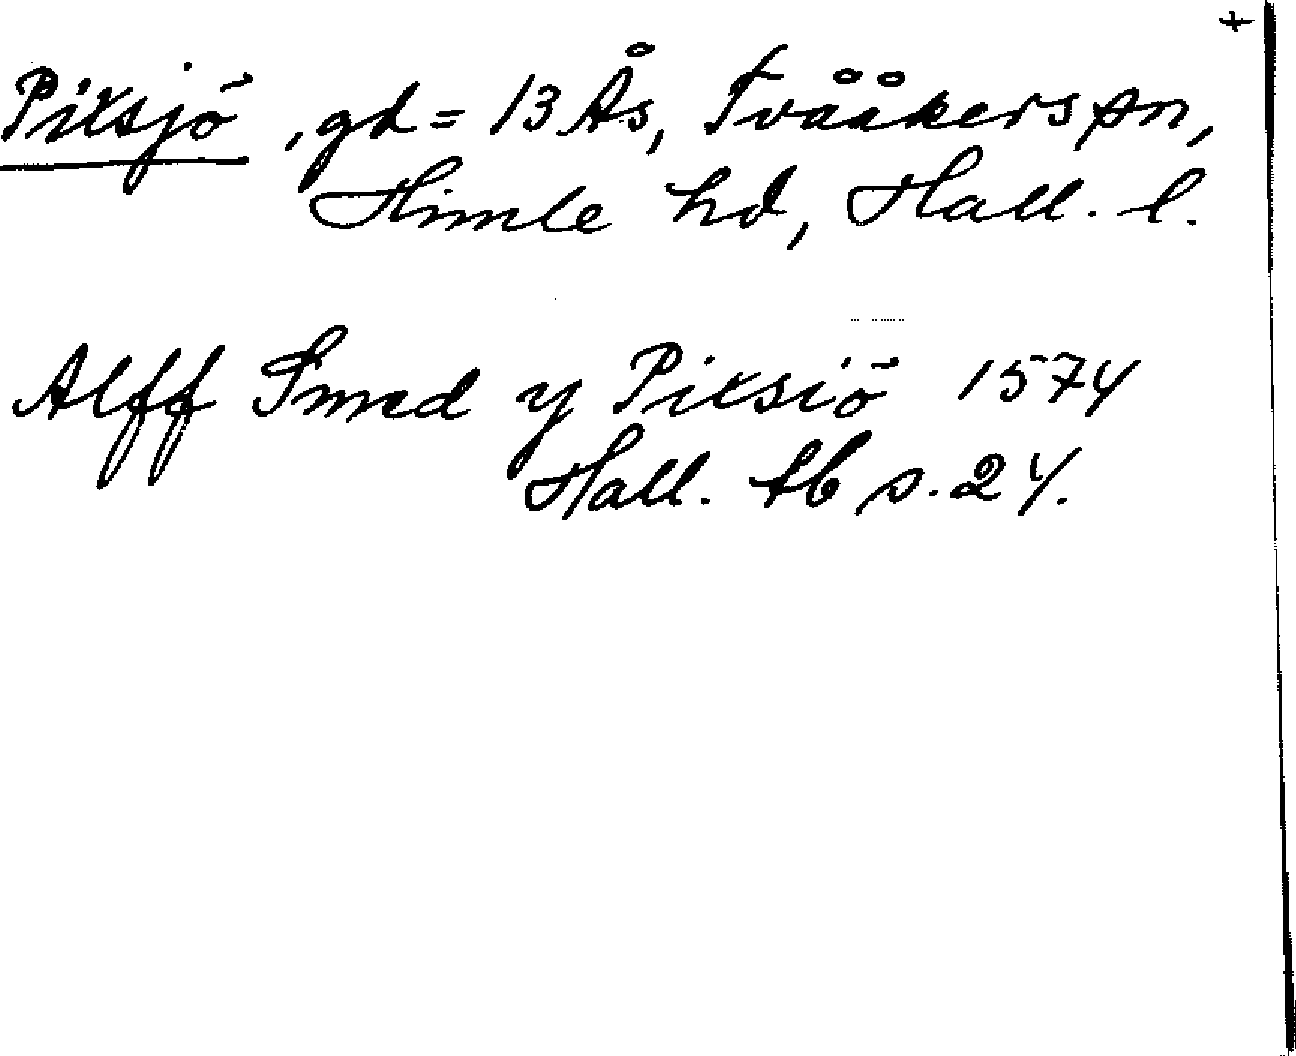 +
Piksjö, gd = 13 Ås, Tvååkers sn,
Himle hd, Hall. l.
Alff Smed y Piksiö 1574
Hall. tb s. 24.